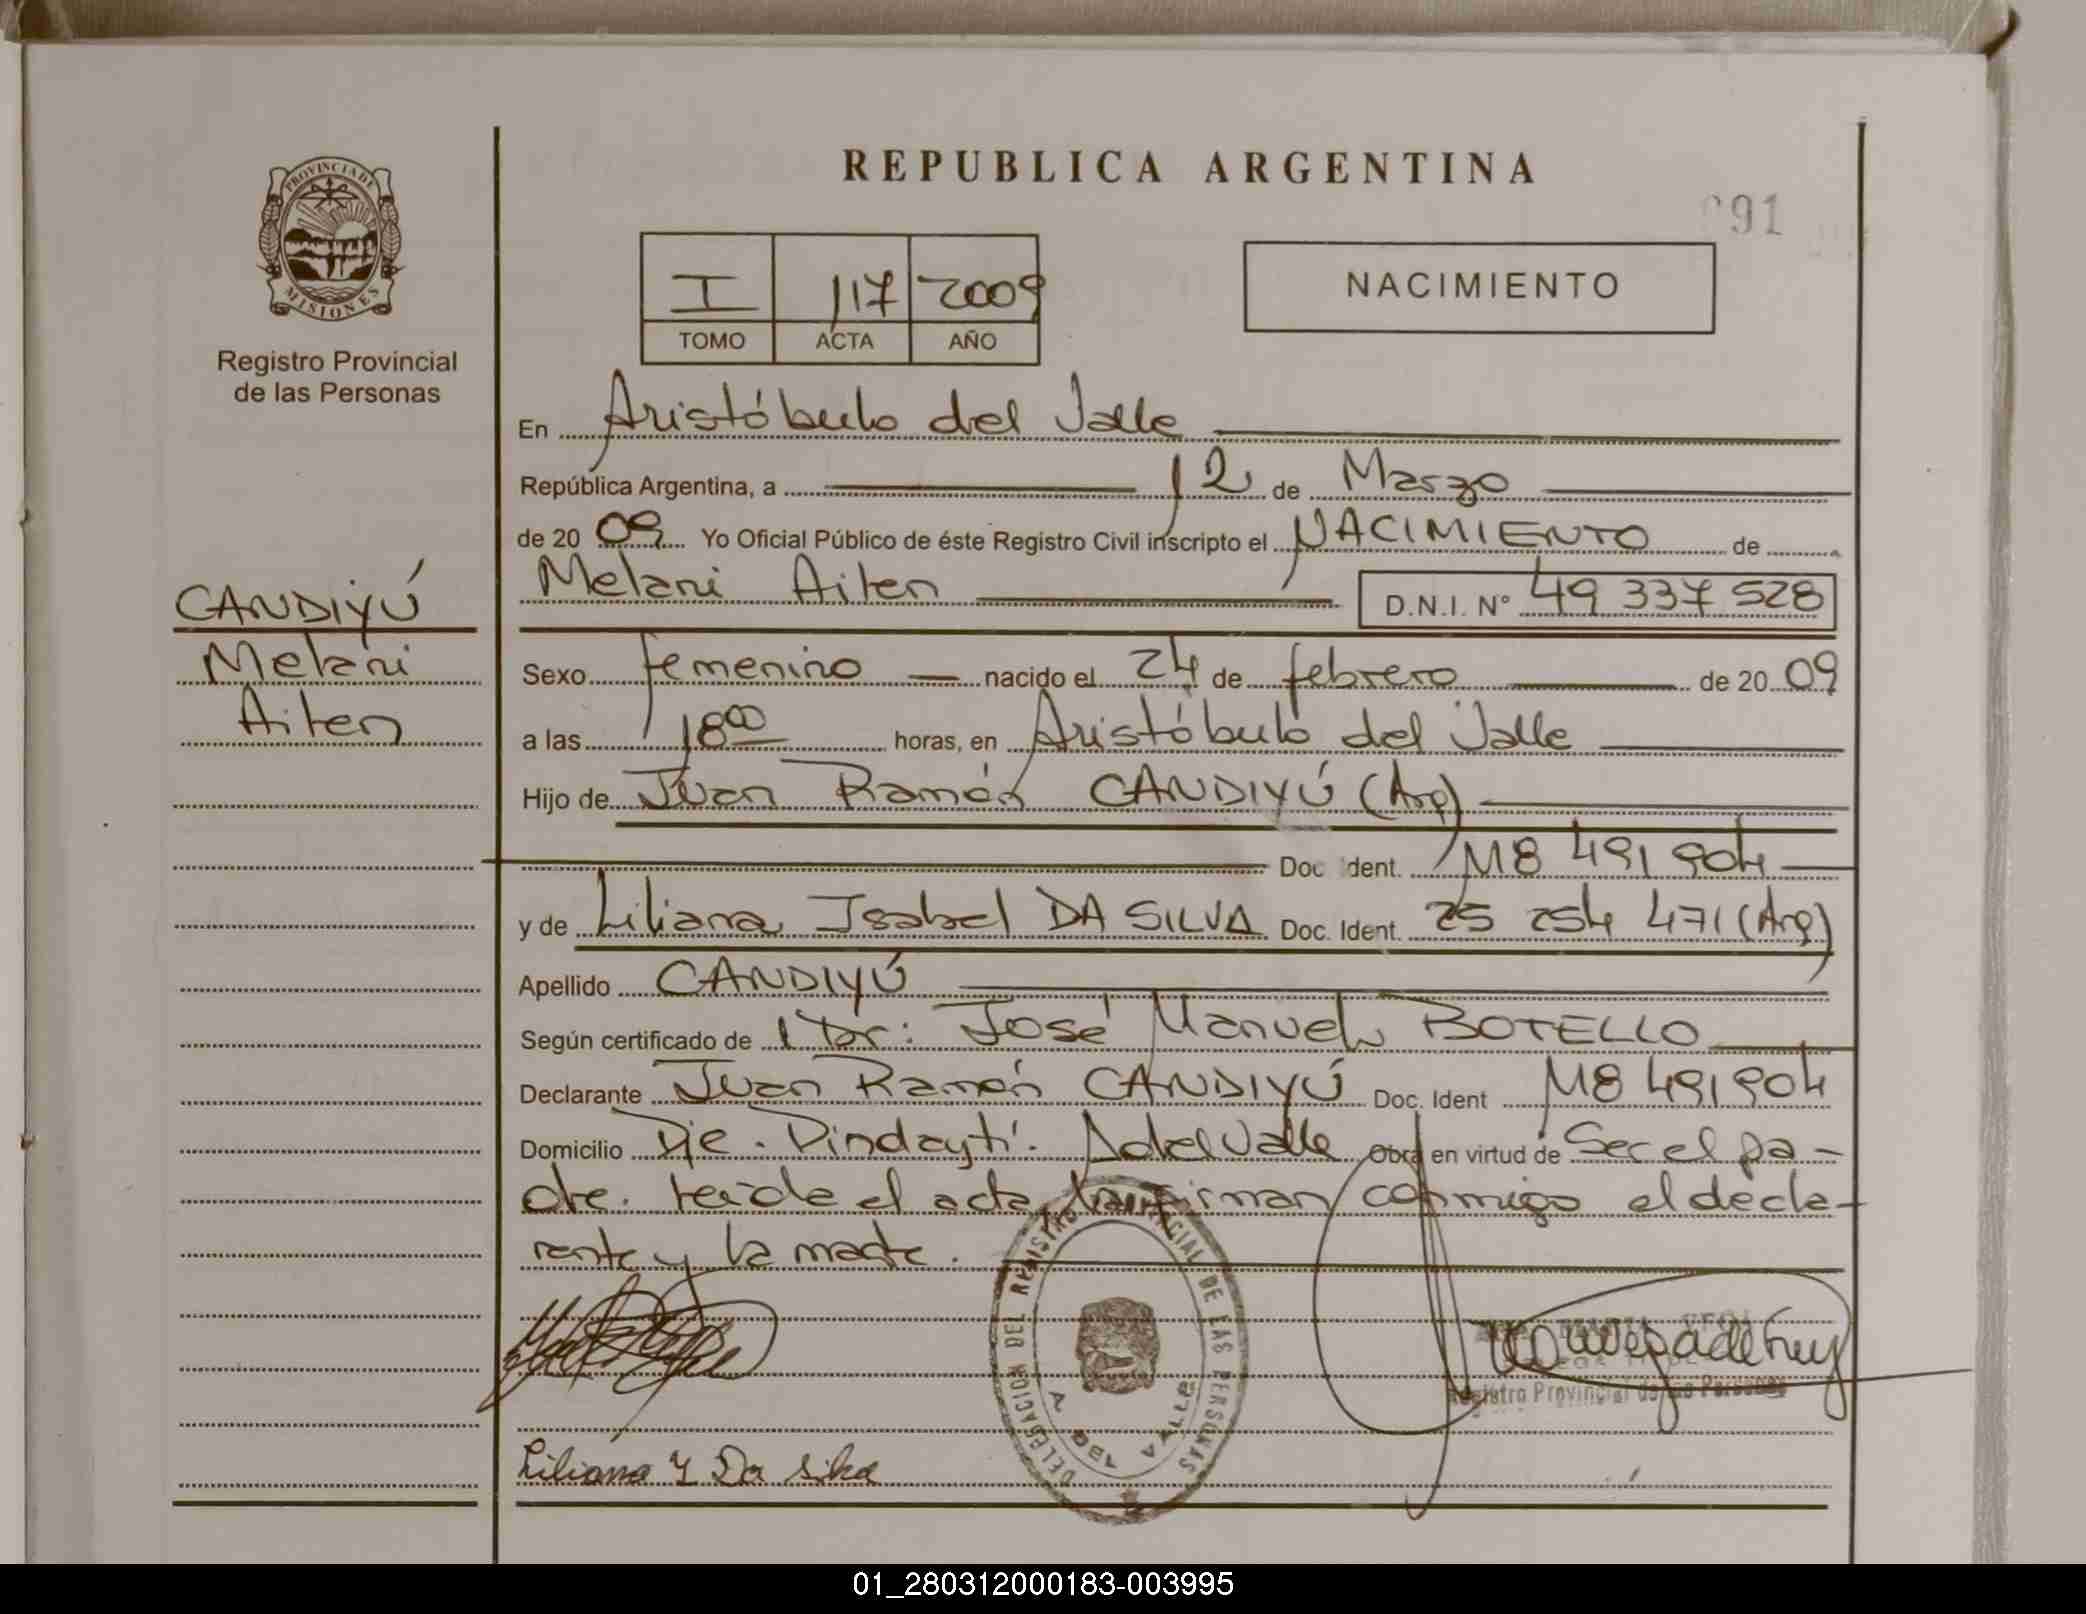 REPUBLICA ARGENTINA
91
PROVINCIA DE
MISIONES
Registro Provincial
de las Personas
I 117 2009
TOMO ACTA AÑO
NACIMIENTO
En Aristóbulo del Valle
República Argentina, a 12 de Marzo
de 2009 Yo Oficial Público de éste Registro Civil inscripto el NACIMIENTO de
Melani Ailen D.N.I. N° 49 337 528
CANDIYÚ
Melani
Ailen
Sexo femenino nacido el 24 de febrero de 2009
a las 18 00 horas, en Aristóbulo del Valle
Hijo de Juan Ramón CANDIYÚ (Arg)
Doc Ident. M8 491 904
y de Liliana Isabel DA SILVA Doc. Ident. 25 254 471 (Arg)
Apellido CANDIYÚ
Según certificado de Dr: José Manuel BOTELLO
Declarante Juan Ramón CANDIYÚ Doc. Ident M8 491 904
Domicilio Pje. Pindaytí. A del Valle Obra en virtud de Ser el pa-
dre. leida el acta la firman conmigo el decla-
rante y la madre.
DELEGACION DEL REGISTRO PROVINCIAL DE LAS PERSONAS
A DEL VALLE
Registro Provincial de las Personas
Liliana Y Da Silva
01_280312000183-003995